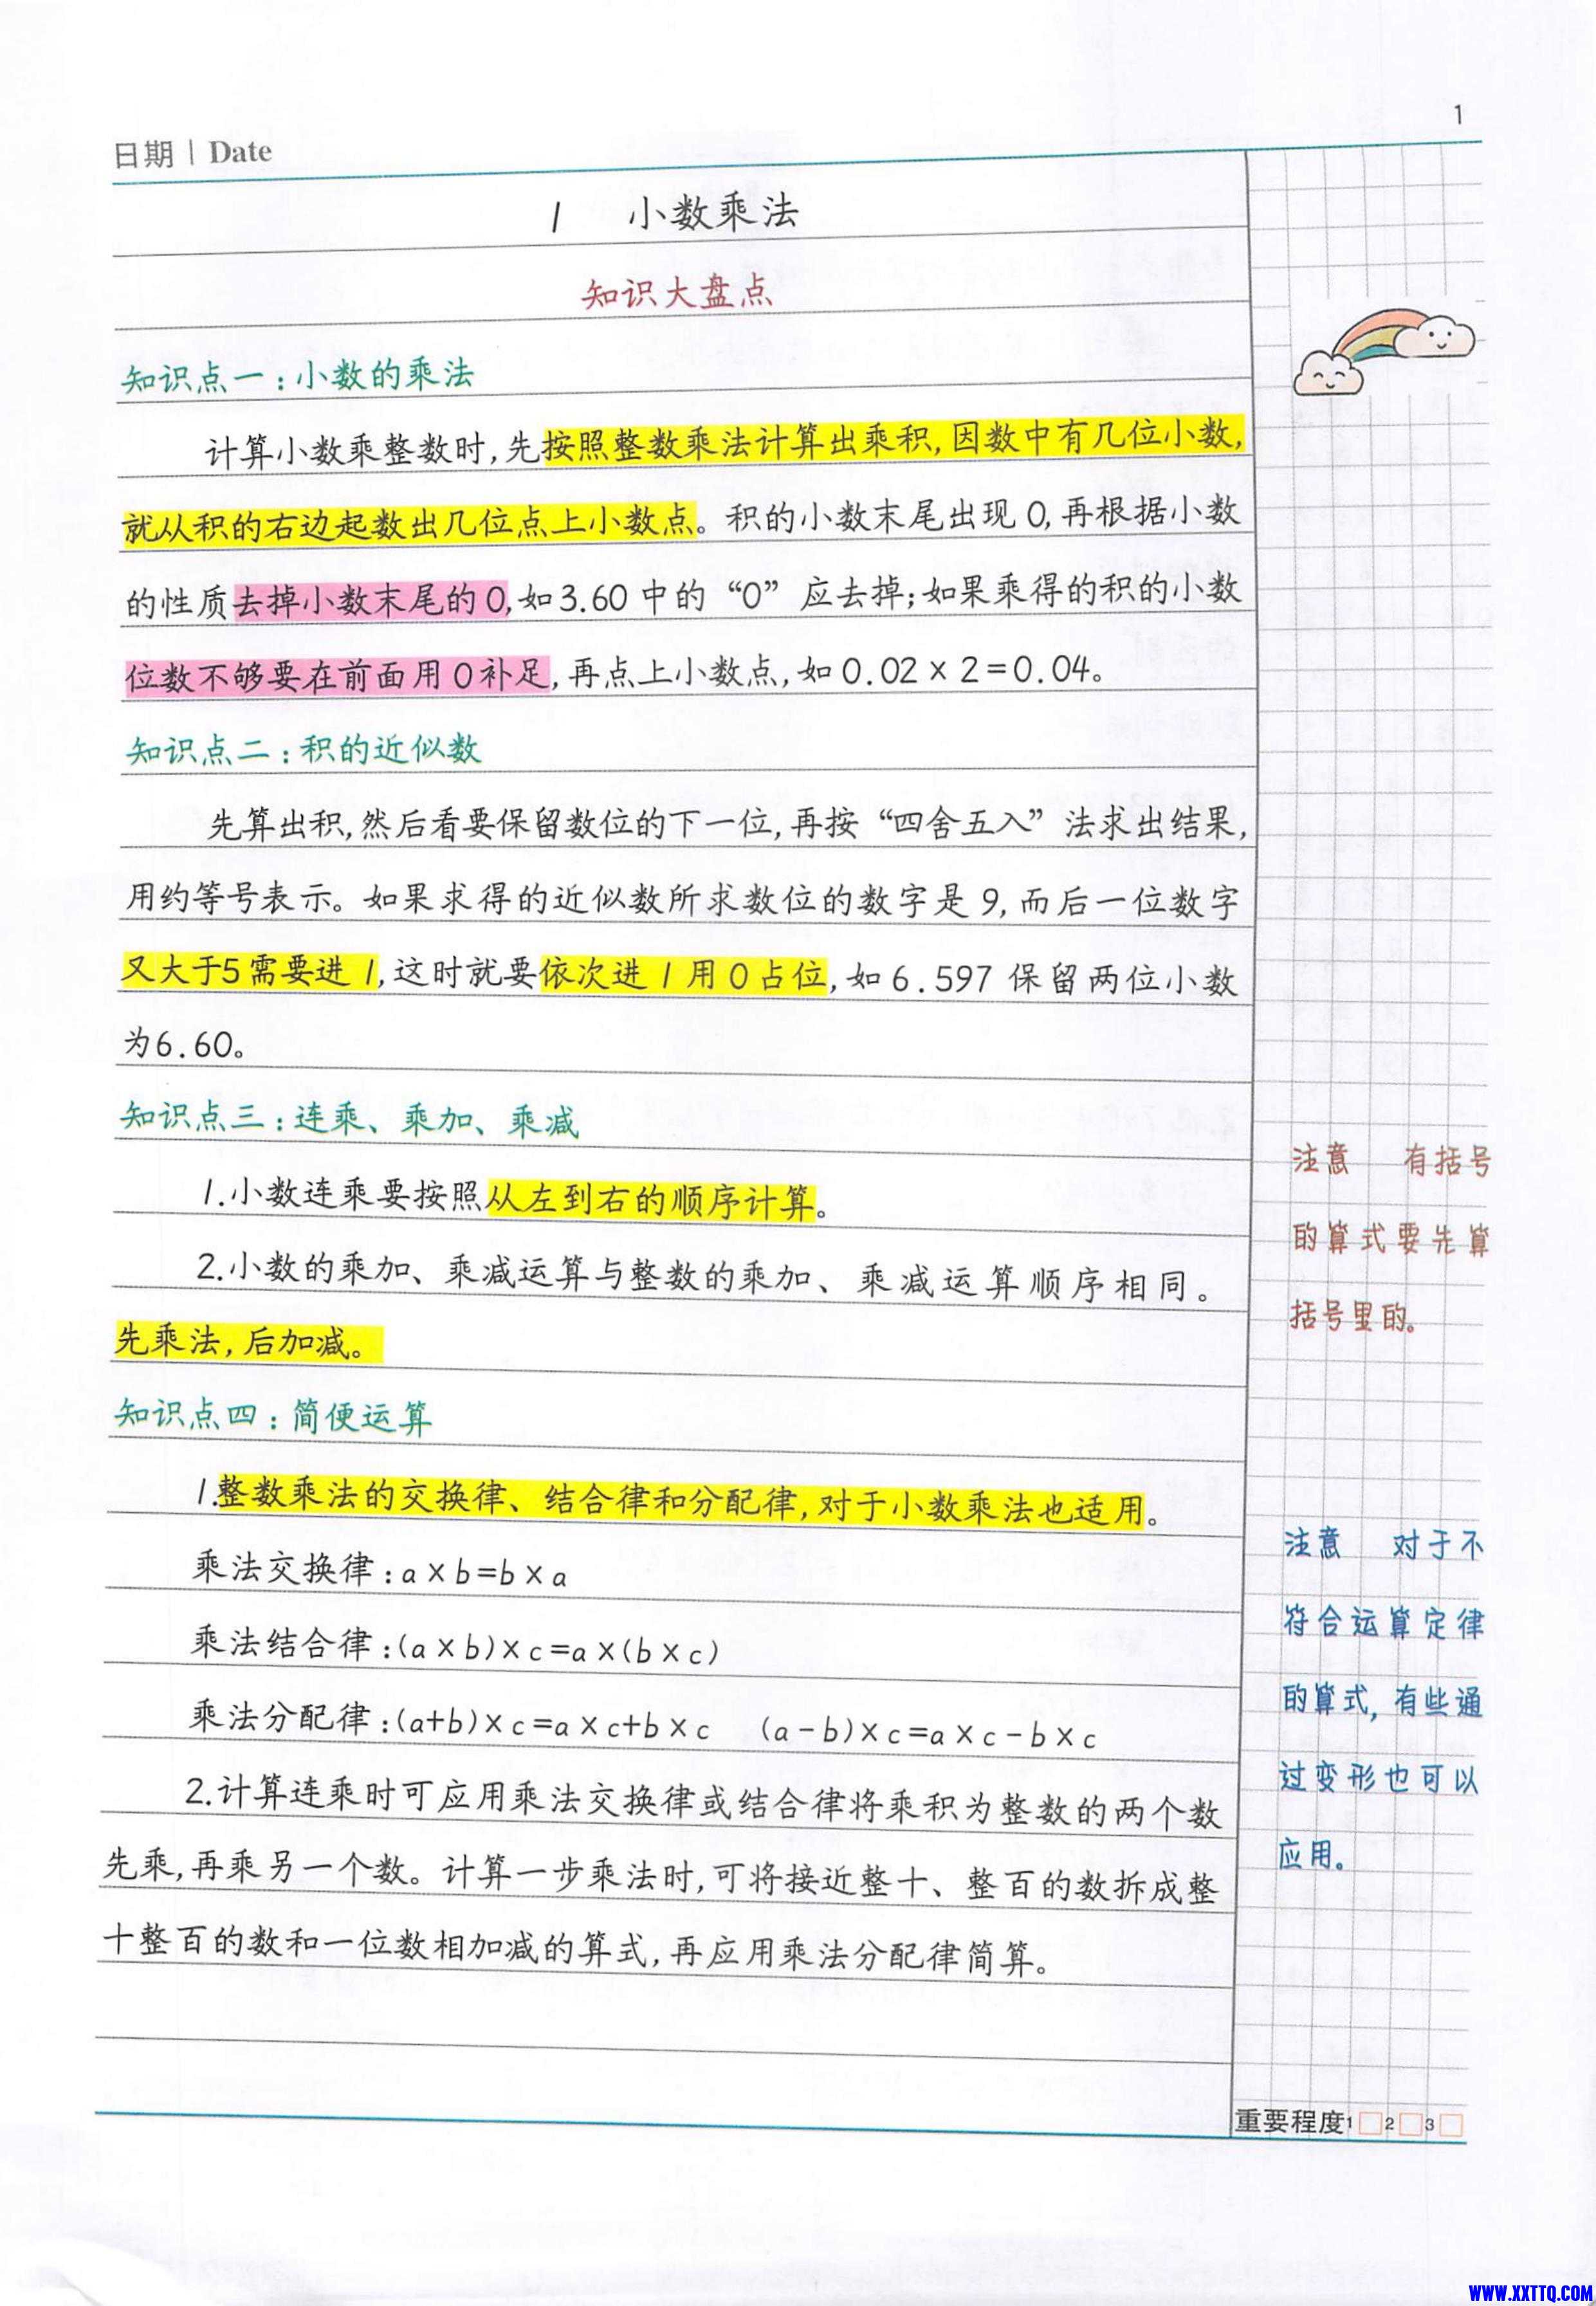 1
日期 | Date
1 小数乘法
知识大盘点
知识点一:小数的乘法
计算小数乘整数时,先按照整数乘法计算出乘积,因数中有几位小数,
就从积的右边起数出几位点上小数点。积的小数末尾出现0,再根据小数
的性质去掉小数末尾的0,如3.60中的“0”应去掉;如果乘得的积的小数
位数不够要在前面用0补足,再点上小数点,如0.02×2=0.04。
知识点二:积的近似数
先算出积,然后看要保留数位的下一位,再按“四舍五入”法求出结果,
用约等号表示。如果求得的近似数所求数位的数字是9,而后一位数字
又大于5需要进1,这时就要依次进1用0占位,如6.597保留两位小数
为6.60。
知识点三:连乘、乘加、乘减
1.小数连乘要按照从左到右的顺序计算。
2.小数的乘加、乘减运算与整数的乘加、乘减运算顺序相同。
先乘法,后加减。
注意 有括号
的算式要先算
括号里的。
知识点四:简便运算
1.整数乘法的交换律、结合律和分配律,对于小数乘法也适用。
乘法交换律:a×b=b×a
乘法结合律:(a×b)×c=a×(b×c)
乘法分配律:(a+b)×c=a×c+b×c (a-b)×c=a×c-b×c
2.计算连乘时可应用乘法交换律或结合律将乘积为整数的两个数
先乘,再乘另一个数。计算一步乘法时,可将接近整十、整百的数拆成整
十整百的数和一位数相加减的算式,再应用乘法分配律简算。
注意 对于不
符合运算定律
的算式,有些通
过变形也可以
应用。
重要程度1□2□3□
WWW.XXTTQ.COM